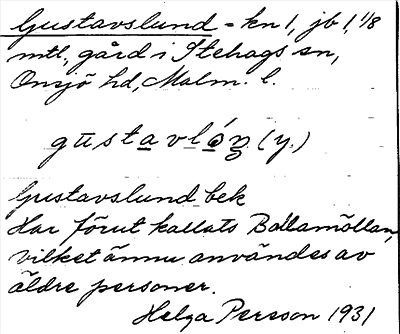 Gustavslund - kn 1, jb 1, 1/8
mtl., gård i Stehags sn,
Onsjö hd, Malm. l.
gustavlón (y.)
Gustavslund bek
Har förut kallats Bállamöllan,
vilket ännu användes av
äldre personer.
Helga Persson 1931